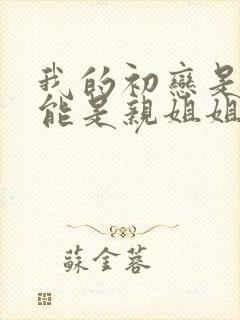 我的初戀是
能是親姐姐
蘇金蓉